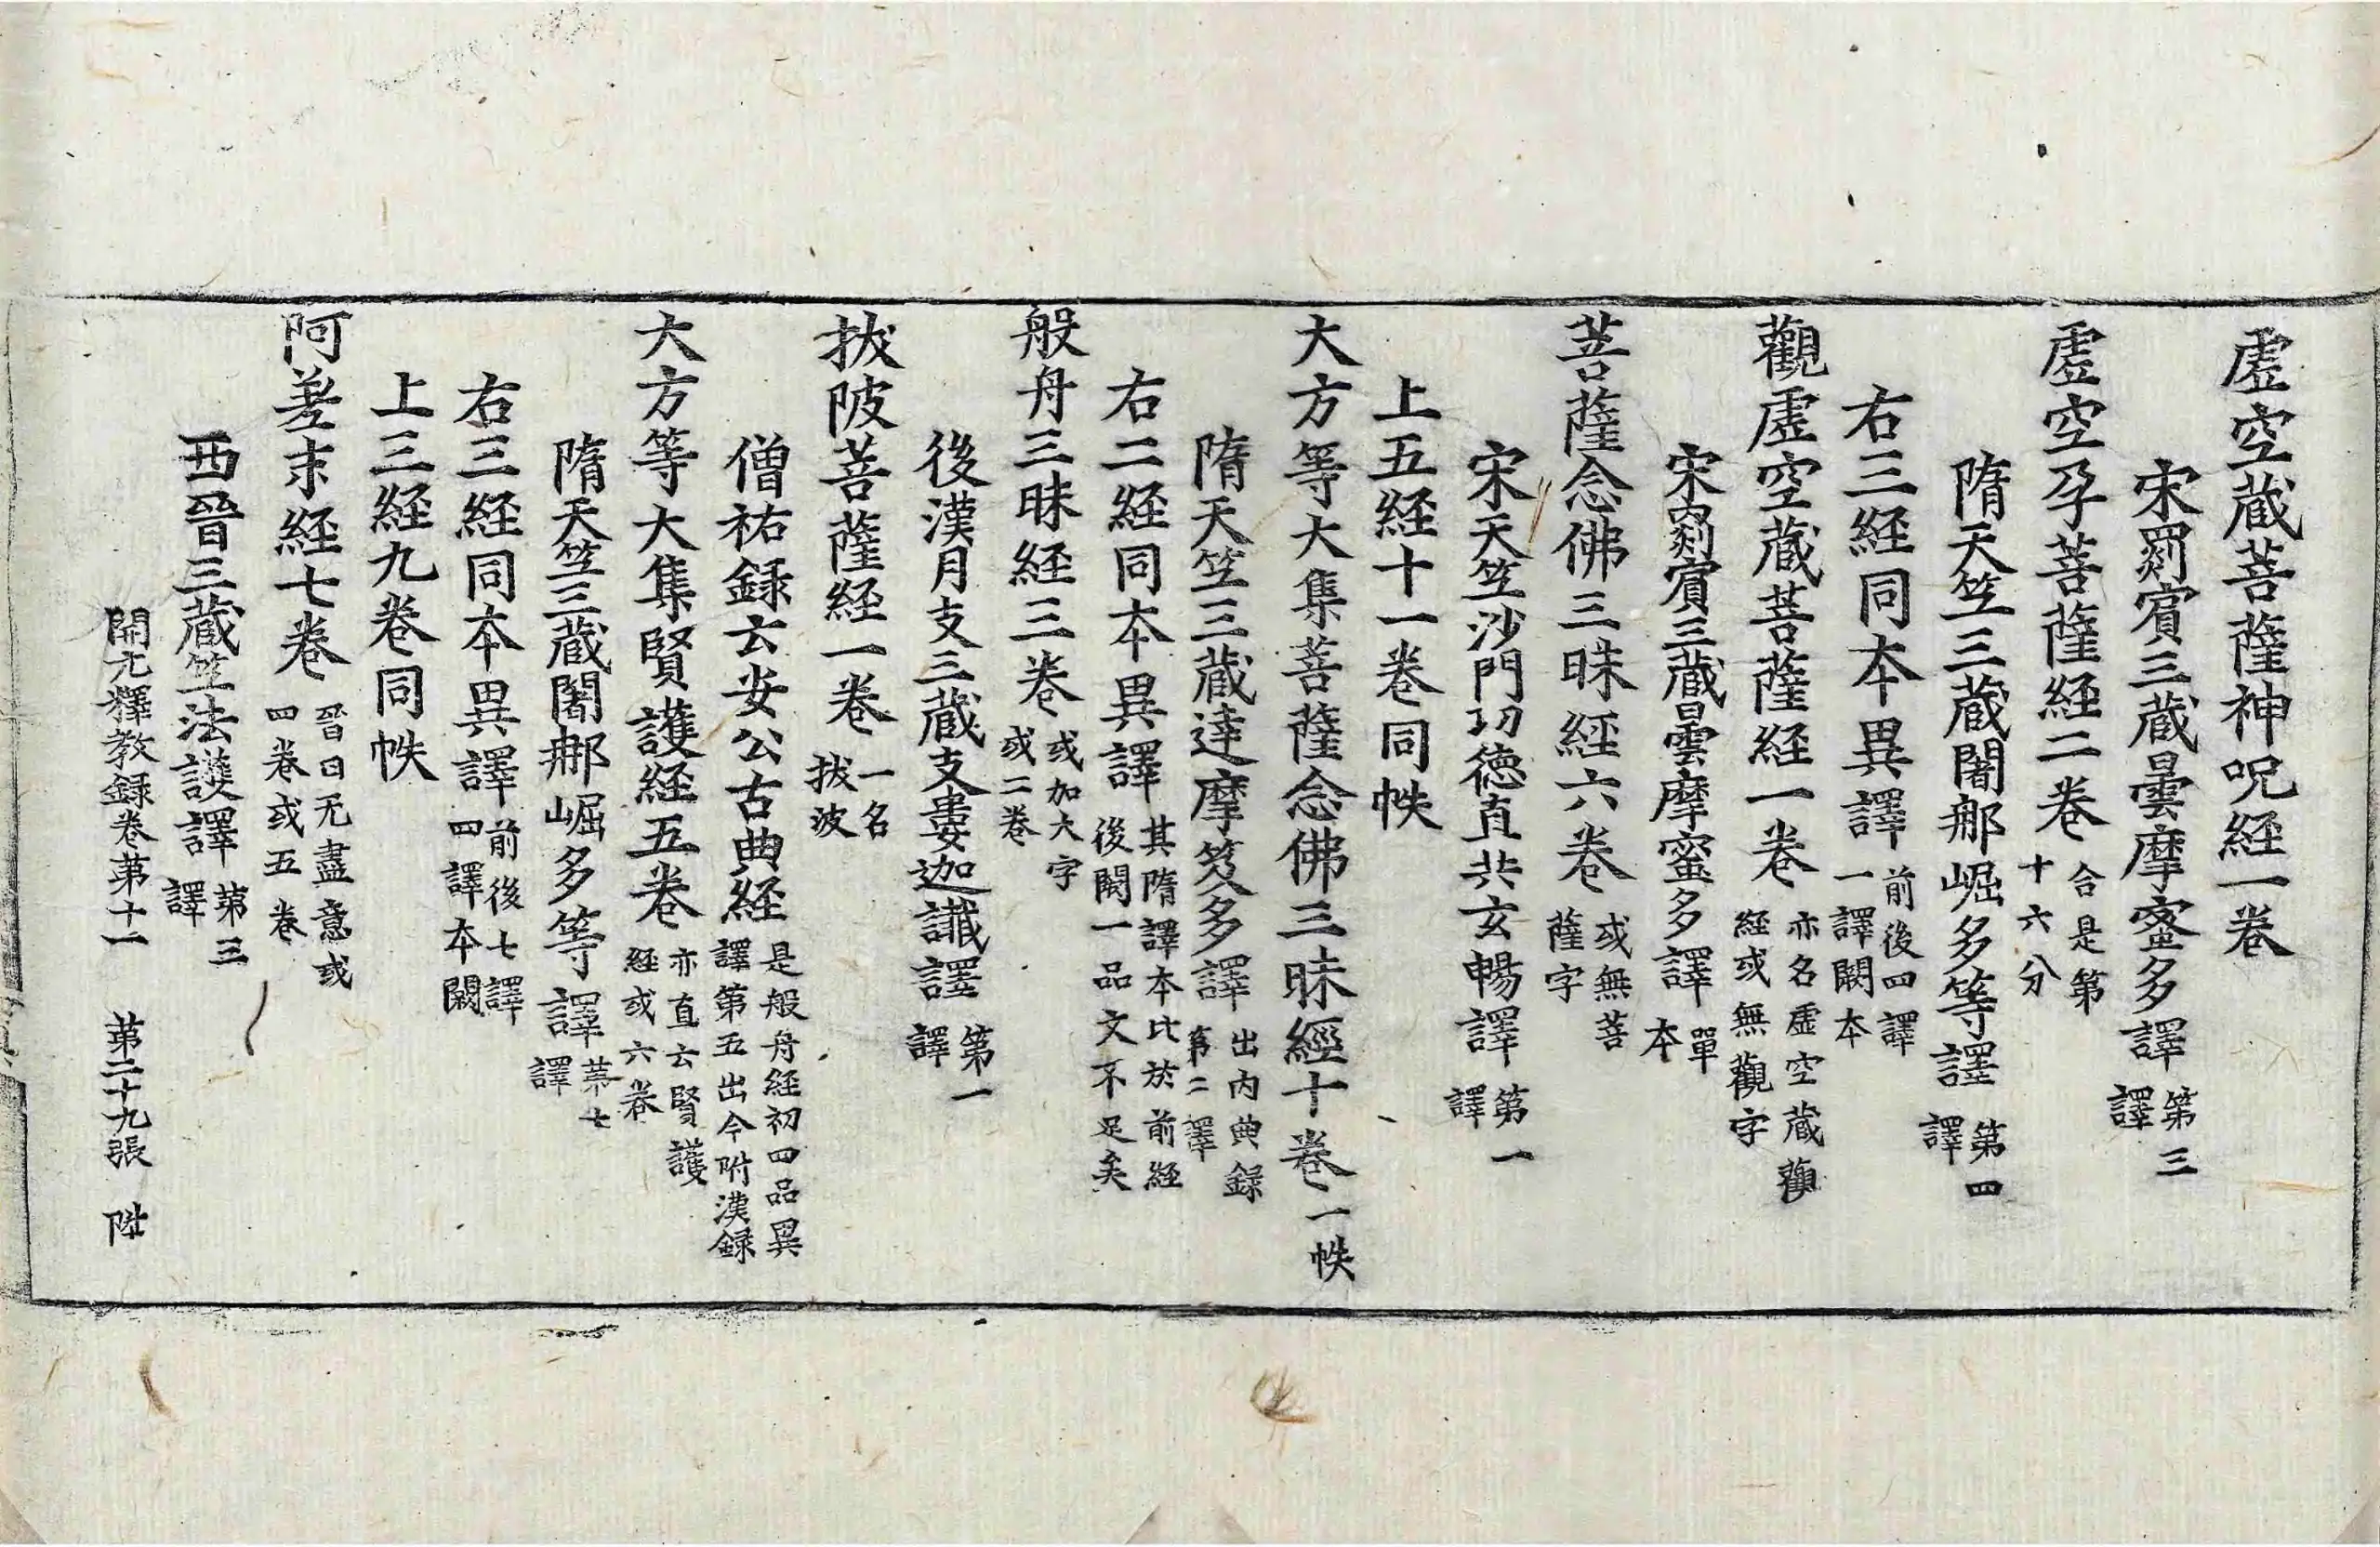 虛空蔵菩薩神呪経一卷
宋罽賓三蔵曇摩蜜多譯第三譯
虛空孕菩薩経二卷合是第十六分
隋天竺三蔵闍那崛多等譯第四譯
右三経同本異譯前後四譯一譯闕本
觀虛空蔵菩薩経一卷亦名虛空蔵觀経或無觀字
宋罽賓三蔵曇摩蜜多譯單本
菩薩念佛三昧経六卷或無菩薩字
宋天竺沙門功德直共玄暢譯第一譯
上五経十一卷同帙
大方等大集菩薩念佛三昧經十卷一帙
隋天竺三蔵達摩笈多譯出內典錄第二譯
右二経同本異譯其隋譯本比於前経後闕一品文不足矣
般舟三昧経三卷或加大字或二卷
後漢月支三蔵支婁迦讖譯第一譯
拔陂菩薩経一卷一名拔波
僧祐録云安公古典経是般舟経初四品異譯第五出今附漢録
大方等大集賢護経五卷亦直云賢護経或六卷
隋天竺三蔵闍那崛多等譯第七譯
右三経同本異譯前後七譯四譯本闕
上三経九卷同帙
阿差末経七卷晉曰无盡意或四卷或五卷
西晉三蔵竺法護譯第三譯
開元釋教録卷第十一　第二十九張　陞